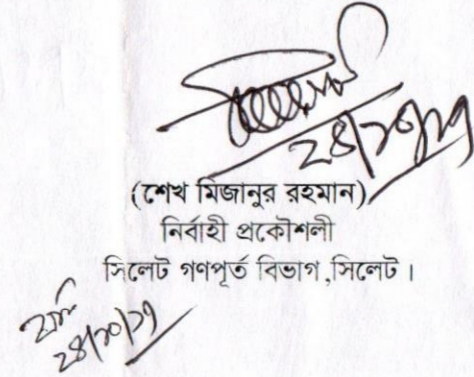 ২৪/১০/১৭
(শেখ মিজানুর রহমান)
নির্বাহী প্রকৌশলী
সিলেট গণপূর্ত বিভাগ,সিলেট।
২৪/১০/১৭